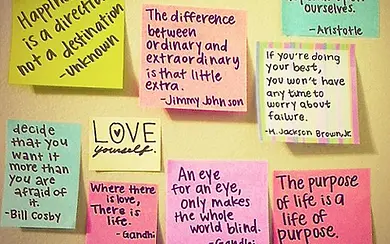 Happiness
is a direction,
not a destination
-unknown
The difference
between
ordinary and
extraordinary
is that little
extra.
-Jimmy Johnson
ourselves.
-Aristotle
If you're doing
your best,
you won't have
any time to
worry about
failure.
-H. Jackson Brown, Jr.
decide
that you
want it
more than
you are
afraid of
it.
-Bill Cosby
LOVE
yourself.
Where there
is love,
There is
life.
-Gandhi
An eye
for an eye,
only makes
the whole
world blind.
-Gandhi
The purpose
of life is a
life of
purpose.